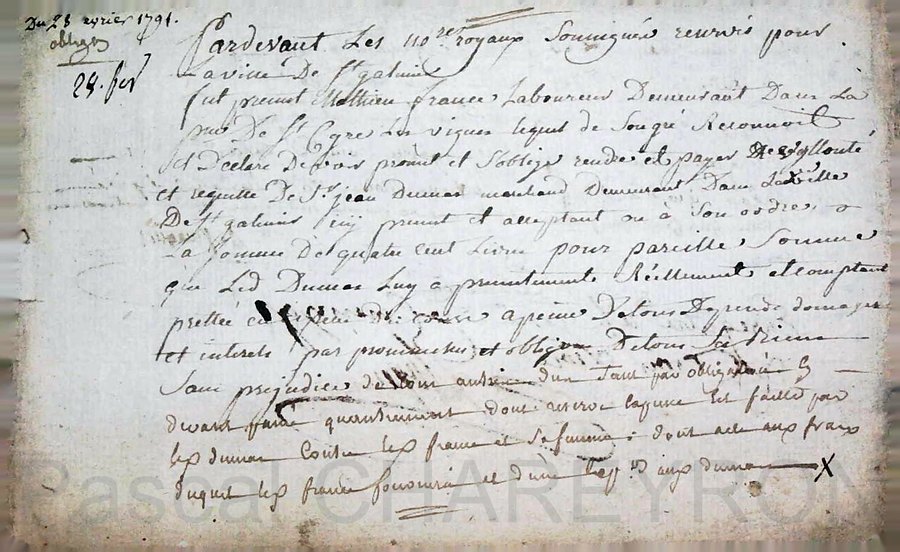 Du 28 fevrier 1791.
obligon
28. fer
Pardevant Les no.res royaux Soussignés reservés pour
La ville De St galmier
fut present Mathieu france Laboureur Demeurant Dans La
De St Cyre Les vignes lequel de Son gré Reconnoit
Et Declare Devoir promet et S'oblige rendre et payer De Sa vollonté
et requitte De Sr. jean Dumas marchand Demeurant Dans La ville
De St galmier icy present et acceptant ou à Son ordre
La Somme De quatre cent Livres pour pareille Somme
que Led Dumas Luy a presentement Réellement et comptant
prettée en De cours a peine De tous Depends domages
et interets par promesses et obligon De tous Ses Biens
Sans prejudice de tout autre du tant par obligation
devant quantiement dont reserve expresse Est faitte par
led dumas Contre led france et Sa femme ; dont acte aux frais
duquel led france fournira et d'une Exp.on aux dumas X
Pascal CHAREYRON